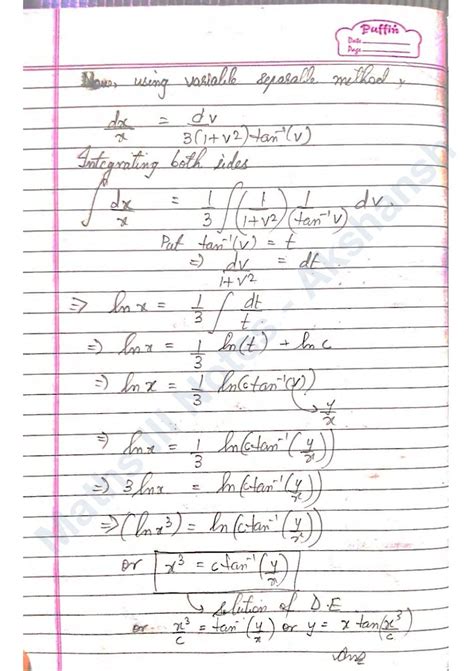 Puffin
Date
Page
Now, using variable separable method,
dx/x = dv/3(1+v2)tan⁻¹(v)
Integrating both sides
∫ dx/x = 1/3 ∫ (1/1+v2) 1/(tan⁻¹v) dv.
Put tan⁻¹(v) = t
⇒ dv/1+v2 = dt
⇒ ln x = 1/3 ∫ dt/t
⇒ ln x = 1/3 ln(t) + ln c
⇒ ln x = 1/3 ln(c tan⁻¹(v))
y/x
⇒ ln x = 1/3 ln(c tan⁻¹(y/x))
⇒ 3 ln x = ln(c tan⁻¹(y/x))
⇒ (ln x³) = ln(c tan⁻¹(y/x))
or x³ = c tan⁻¹(y/x)
↳ solution of D.E.
or x³/c = tan⁻¹(y/x) or y = x tan(x³/c)
Ans
Maths III Notes - Akshansh